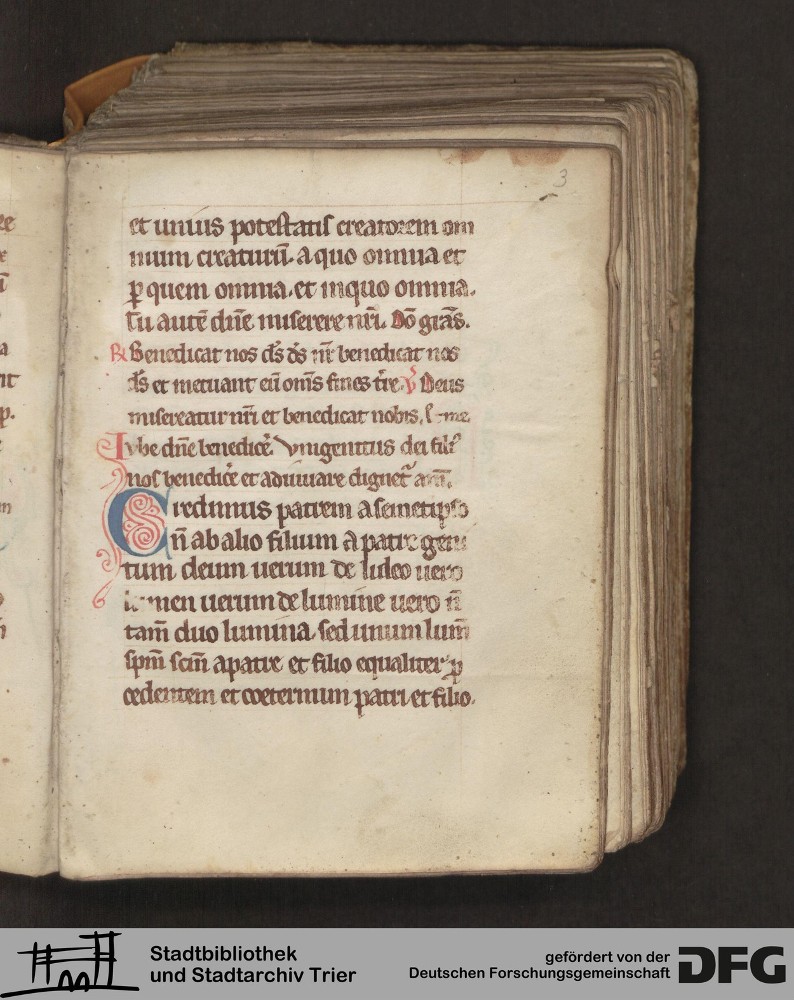 3
et unius potestatis creatorem om
nium creaturū. a quo omnia et
ꝑ quem omnia. et inquo omnia.
Tu autē dn̄e miserere nr̄i. Dō gr̄as.
℞ Benedicat nos ds̄ ds̄ nr̄ benedicat nos
ds̄ et metuant eū om̄s fines tr̄e. ℣ Deus
misereatur nr̄i et benedicat nobis.
Iube dn̄e benedicē. Unigenitus dei fili᷒
nos benedicē et adiuuare dignet᷑ am̄.
Credimus patrem a semetipso
n̄ ab alio filium a patre geni
tum deum uerum de uero
lumen uerum de lumine uero n̄
tam̄ duo lumina. sed unum lum̄
spm̄ scm̄ apatre et filio equaliter ꝓ
cedentem et coeternum patri et filio.
Stadtbibliothek
und Stadtarchiv Trier
gefördert von der
Deutschen Forschungsgemeinschaft
DFG